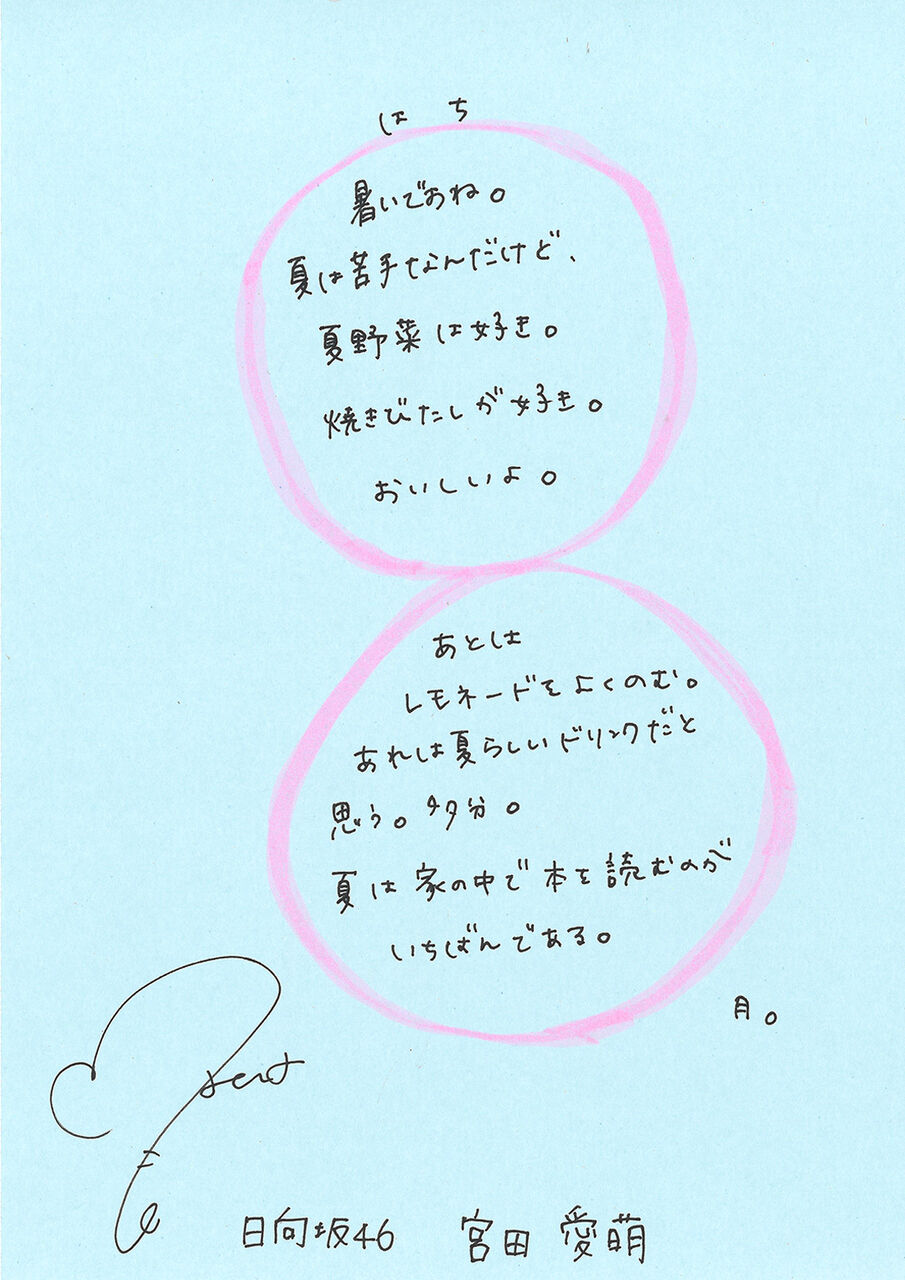 はち
暑いでおね。
夏は苦手なんだけど、
夏野菜は好き。
焼きびたしが好き。
おいしいよ。
あとは
レモネードをよくのむ。
あれは夏らしいドリンクだと
思う。多分。
夏は家の中で本を読むのが
いちばんである。
月。
日向坂46 宮田愛萌